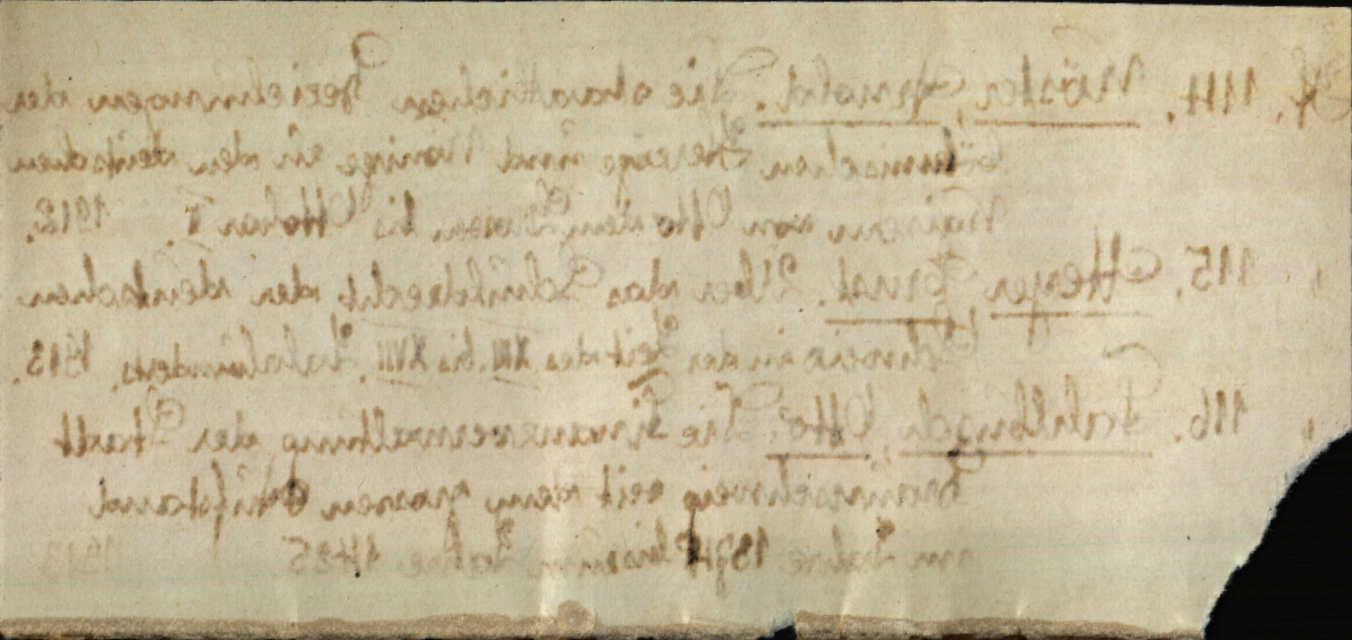 H. 114. Köster, Arnold. Die staatlichen Beziehungen der
böhmischen Herzöge und Könige zu den deutschen
Kaisern von Otto dem Grossen bis Ottokar I. 1912.
" 115. Meyer, Ernst. Über das Schuldrecht der deutschen
Schweiz in der Zeit des XIII. bis XVII. Jahrhunderts. 1913.
" 116. Fahlbusch, Otto. Die Finanzverwaltung der Stadt
Braunschweig seit dem grossen Aufstand
im Jahre 1374 bis zum Jahre 1425 1913